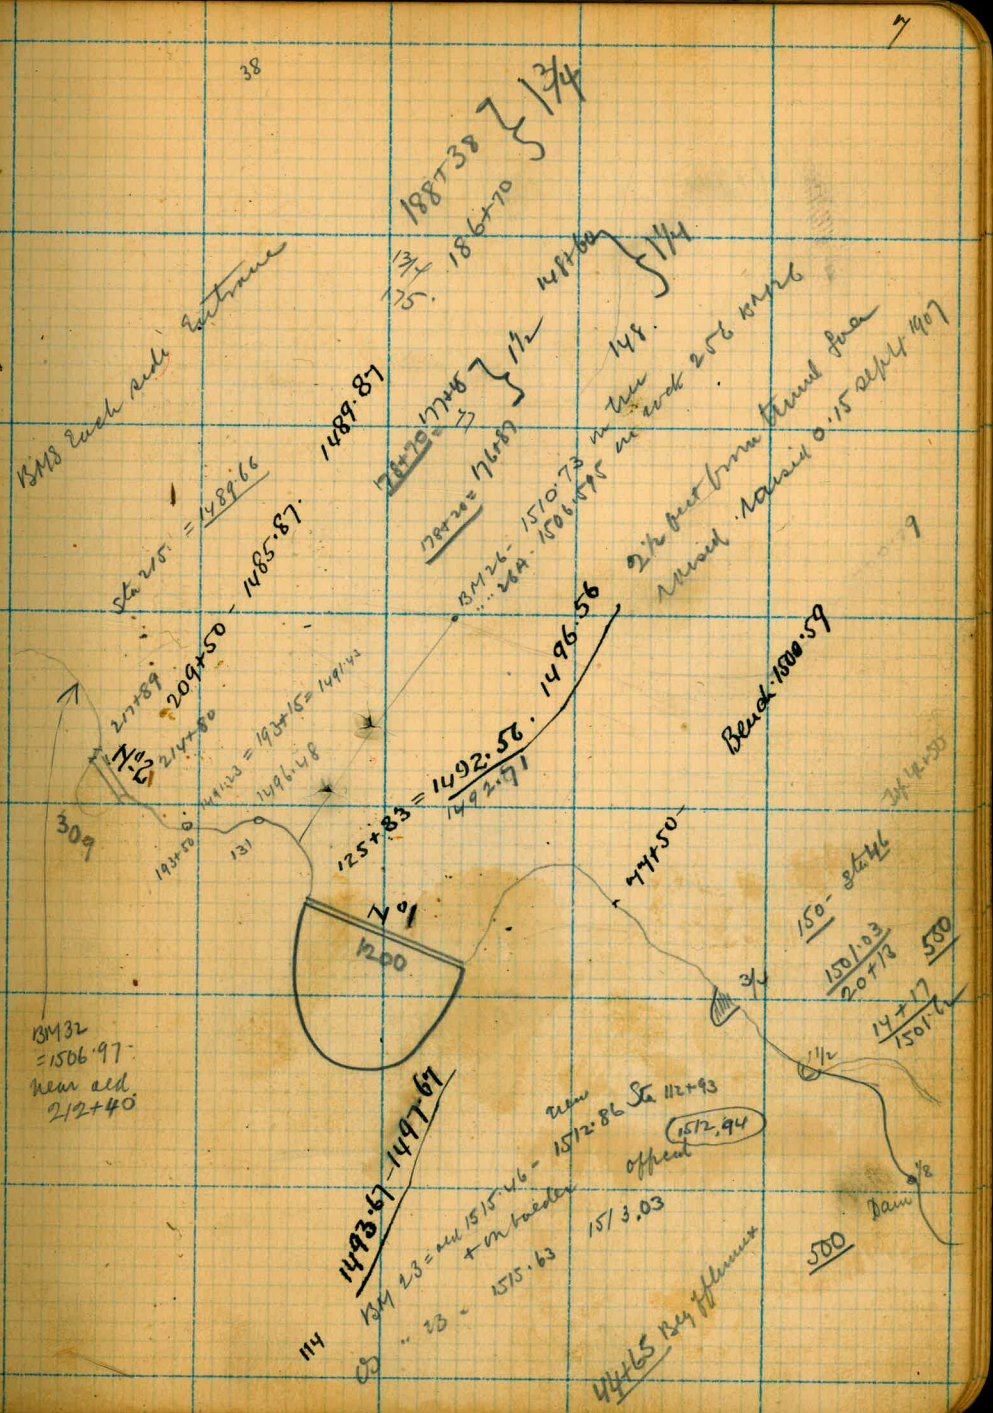 7
38
188+38 } 1 3/4
186+70
13/4
175.
148+60 } 1 1/4
148.
BMS Each side Entrance
1489.87
178+70 177+45 } 1 1/2
= 77
178+20 = 176+87
Sta 215. = 1489.66
209+50 - 1485.87.
BM 26 - 1510.73 in tree
" " 26A - 1506.595 on rock 256 BM 26
2 1/2 feet from tunnel
raised. raised 0.15 sept 4 1907
9
217+89
214+80
1491.23 = 193+15 = 1491.43
1496.48
193+50
131
309
125+83 = 1492.56. 1496.56
1492.71
Bench 1500.59
77+50-
1200
3/4
1 1/2
1/8
Dam
150- Sta 46
1501.03
20+13
550
14+17
1501.62
BM 32
=1506.97-
near old
212+40
1493.67-1497.67
new
BM 23 = old 1515.46 - 1512.86 Sta 112+93
+ on boulder
1512.94
" 23 - 1515.63
1513.03
500
114
44+65 Beg